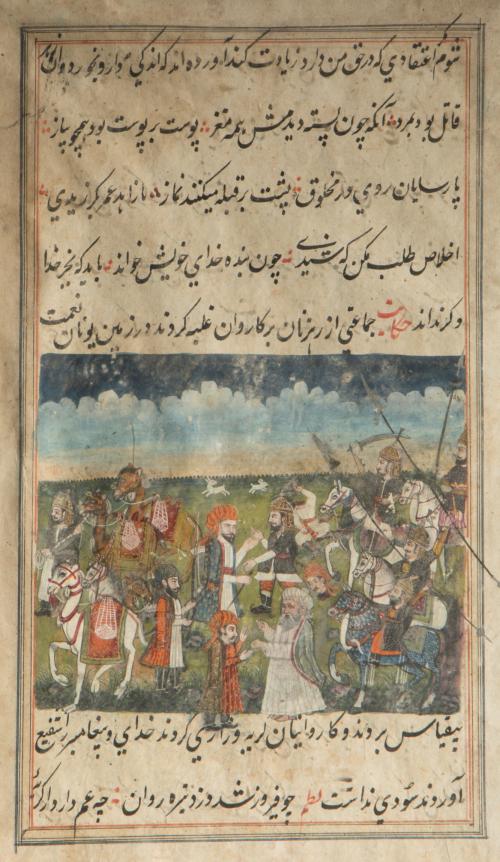 شوم اعتقادي که در حق من دارد زيادت کند آورده اند که اندکي دارو بخورد وان
قاتل بود بمرد آنکه چون پسته ديدمش همه مغز پوست بر پوست بود همچو پياز
پارسايان روي در مخلوق پشت بر قبله ميکنند نماز زاهد عمر بکر زيدي
اخلاص طلب مکن که شيدي چون بنده خداي خويش خواند بايد که بجز خدا
و کر نداند حکايت جماعتي از رهزنان بر کاروان غلبه کردند در زمين يونان نعمت
بيقياس بردند و کاروانيان کريه و زاري کردند خداي و پيغامبر را شفيع
آوردند سودي نداشت نظم چو فيروز شد دزد تيره روان چه غم دارد از کريه